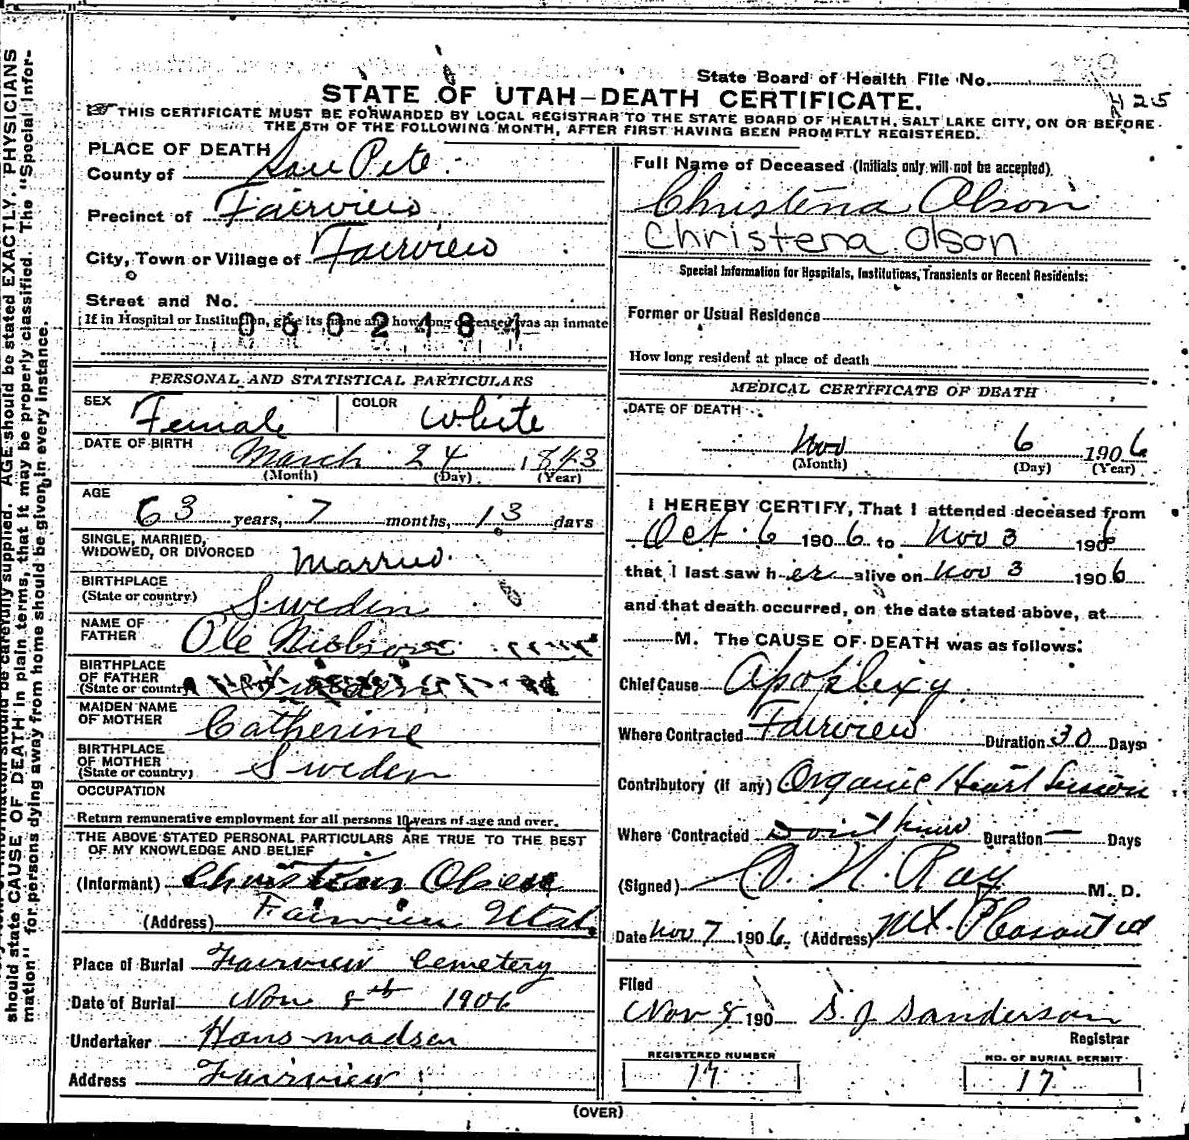 State Board of Health File No.
425
STATE OF UTAH—DEATH CERTIFICATE.
THIS CERTIFICATE MUST BE FORWARDED BY LOCAL REGISTRAR TO THE STATE BOARD OF HEALTH, SALT LAKE CITY, ON OR BEFORE
THE 5TH OF THE FOLLOWING MONTH, AFTER FIRST HAVING BEEN PROMPTLY REGISTERED.
PLACE OF DEATH
County of San Pete
Precinct of Fairview
City, Town or Village of Fairview
Street and No.
If in Hospital or Institution, give its name and how long deceased was an inmate
0602484
PERSONAL AND STATISTICAL PARTICULARS
SEX Female COLOR White
DATE OF BIRTH
March 24 1843
(Month) (Day) (Year)
AGE
63 years, 7 months, 13 days
SINGLE, MARRIED,
WIDOWED, OR DIVORCED Married
BIRTHPLACE
(State or country) Sweden
NAME OF
FATHER Ole
BIRTHPLACE
OF FATHER
(State or country)
MAIDEN NAME
OF MOTHER Catherine
BIRTHPLACE
OF MOTHER
(State or country) Sweden
OCCUPATION
Return remunerative employment for all persons 10 years of age and over.
THE ABOVE STATED PERSONAL PARTICULARS ARE TRUE TO THE BEST
OF MY KNOWLEDGE AND BELIEF
(Informant) Christian Olsen
(Address) Fairview Utah
Place of Burial Fairview Cemetery
Date of Burial Nov 8th 1906
Undertaker Hans Madsen
Address Fairview
Full Name of Deceased (Initials only will not be accepted)
Christena Olson
Christena Olson
Special Information for Hospitals, Institutions, Transients or Recent Residents:
Former or Usual Residence
How long resident at place of death
MEDICAL CERTIFICATE OF DEATH
DATE OF DEATH
Nov 6 1906
(Month) (Day) (Year)
I HEREBY CERTIFY, That I attended deceased from
Oct. 6 1906 to Nov 3 1906
that I last saw her alive on Nov 3 1906
and that death occurred, on the date stated above, at
M. The CAUSE OF DEATH was as follows:
Chief Cause Apoplexy
Where Contracted Fairview Duration 30 Days
Contributory (if any) Organic Heart Lesion
Where Contracted Don't know Duration — Days
(Signed) N. Ray M. D.
Date Nov 7 1906. (Address) Mt. Pleasant
Filed
Nov 8 190 S. J. Sanderson
Registrar
REGISTERED NUMBER
17
NO. OF BURIAL PERMIT
17
(OVER)
should be carefully supplied. AGE should be stated EXACTLY. PHYSICIANS
should state CAUSE OF DEATH in plain terms, that it may be properly classified. The "Special Infor-
mation" for persons dying away from home should be given in every instance.